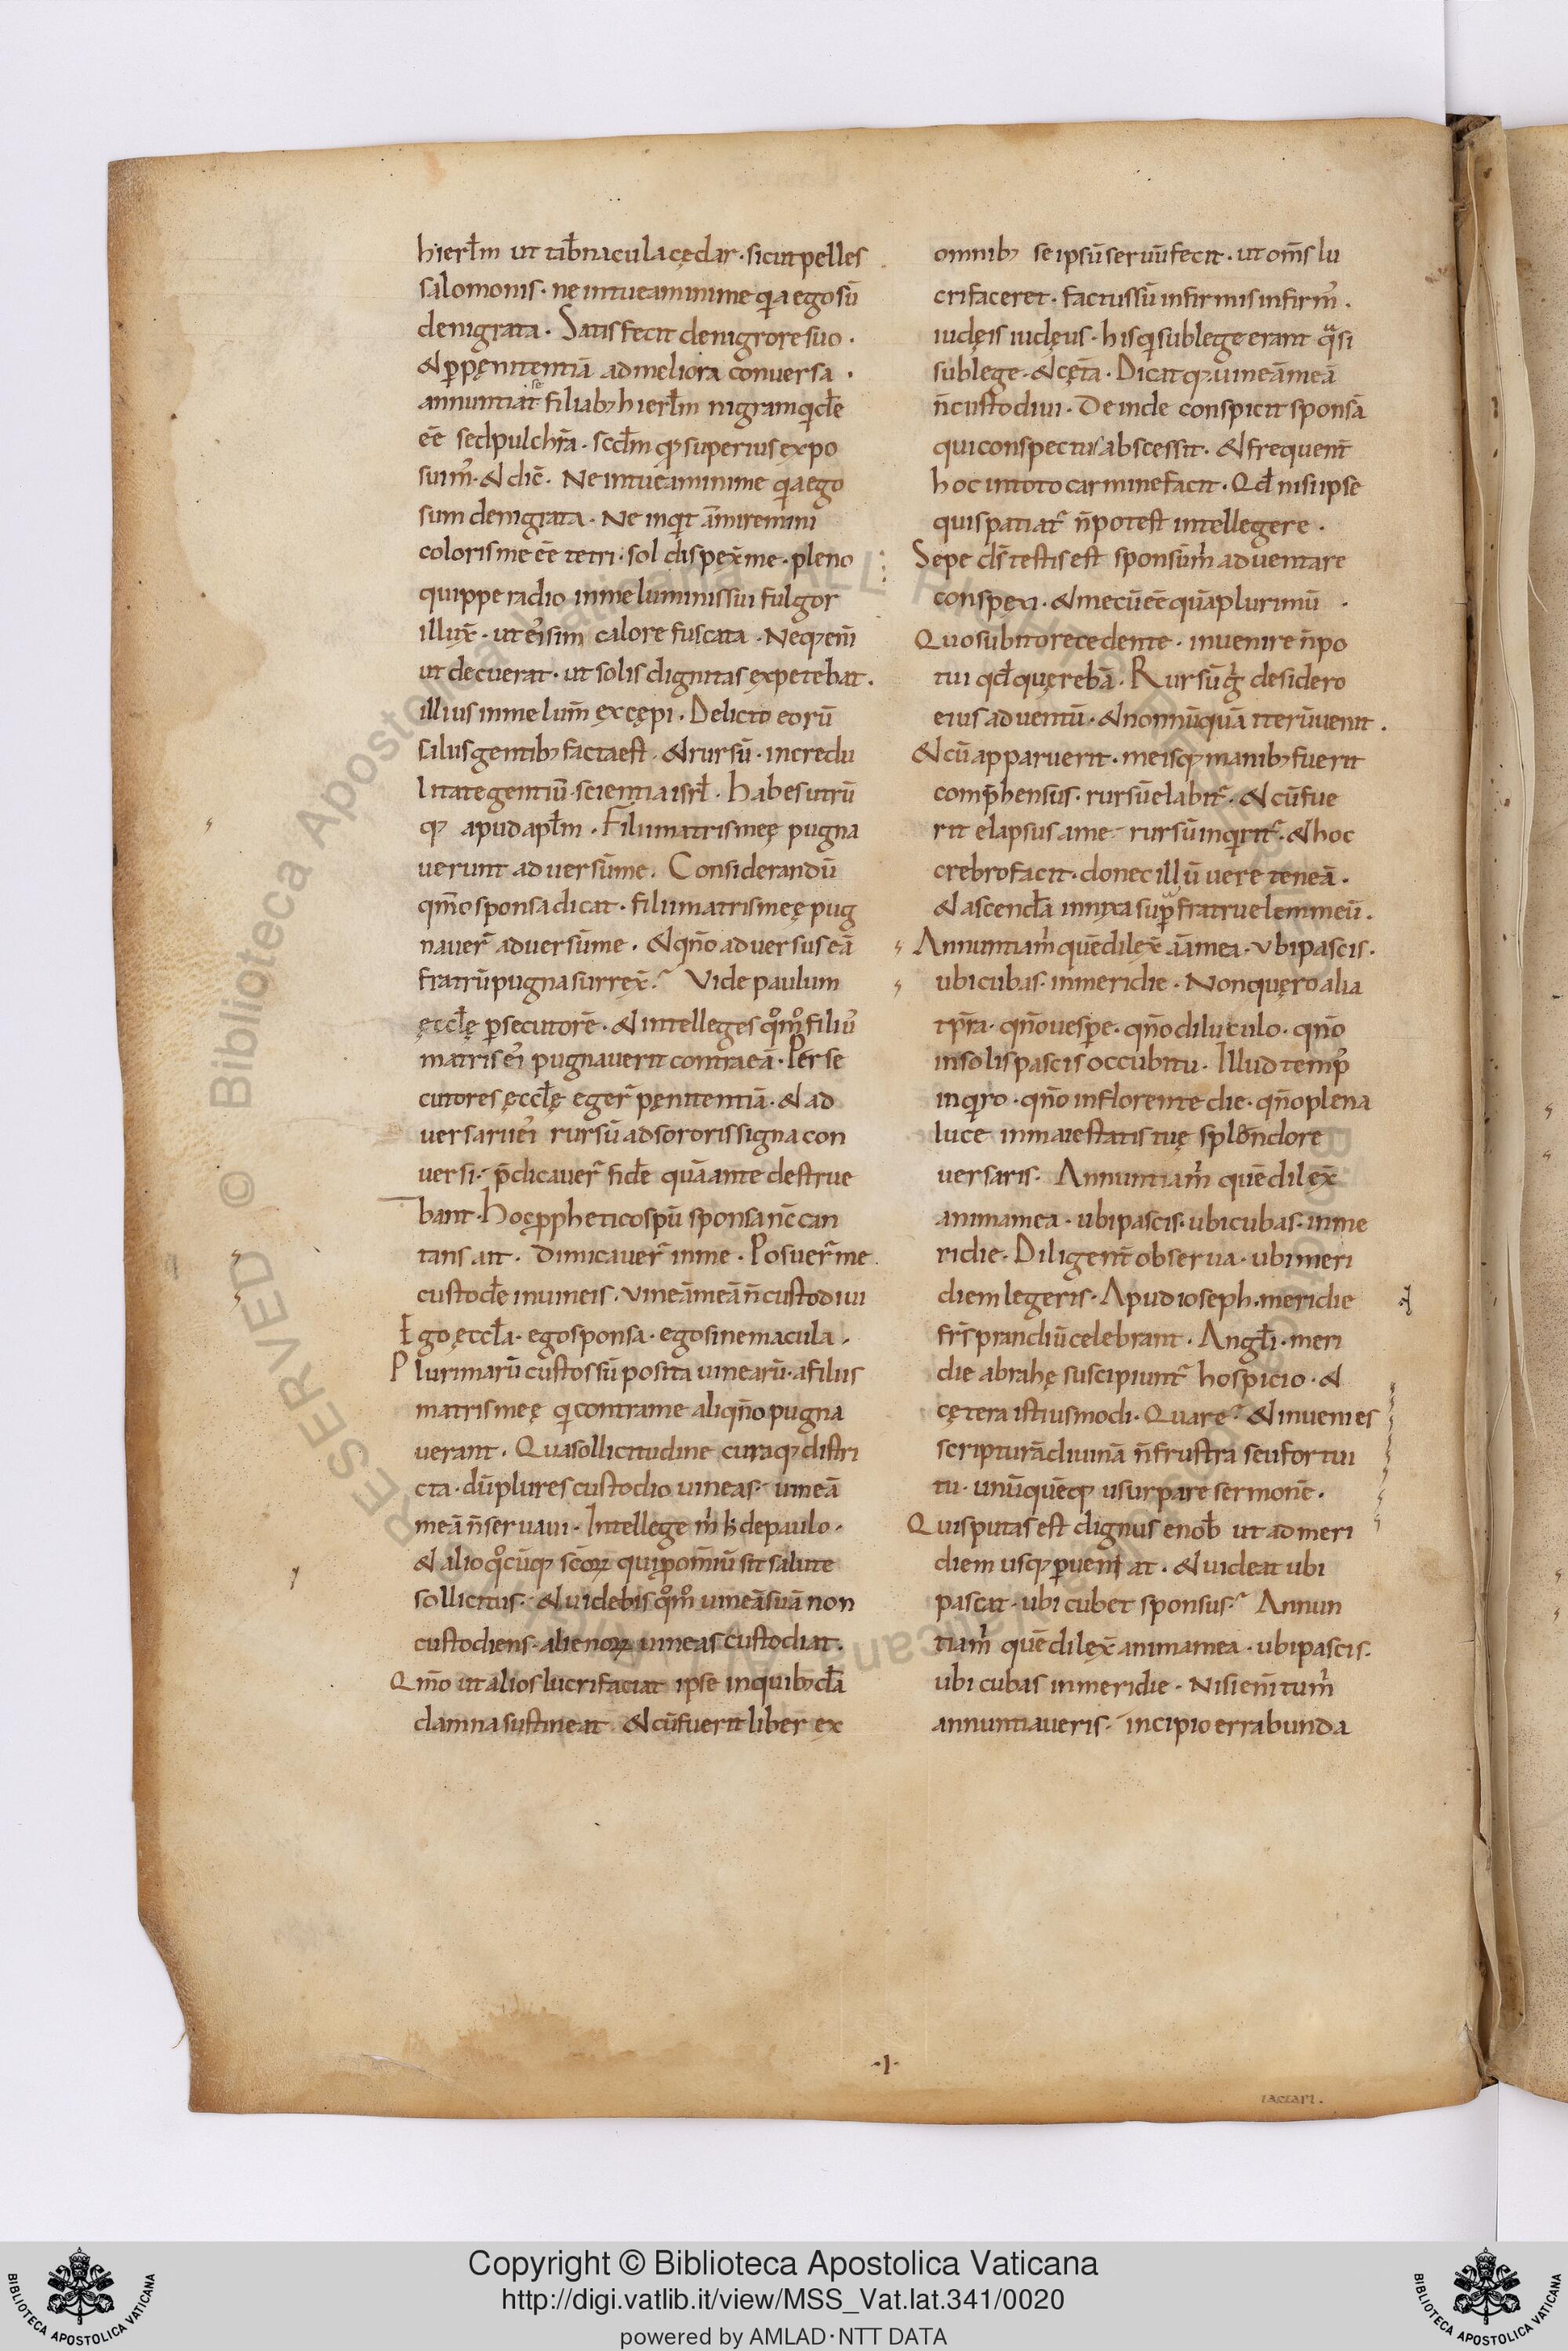 hierłm ut tab̄nacula cędar · sicut pelles
salomonis · ne intueamini me qia ego sū
denigrata · Satis fecit de nigrore suo ·
& ꝑ pęnitentiā ad meliora conuersa ·
annuntiat se filiab; hierłm nigram qidē
eē̄ sed pulchrā · scđm q; superius expo
suim᾽ · & dic̄ · Ne intueamini me qia ego
sum denigrata · Ne inqit āmiremini
coloris me eē̄ tetri · sol dispex̄ me · pleno
quippe radio in me luminis sui fulgor
illux̄ · ut ei᾽ sim calore fuscata · Neq; eni᾽
ut decuerat · ut solis dignitas expetebat ·
illius in me lum̄ excępi · Delicto eorū
salus gentib; facta est · & rursū · incredu
litate gentiū · scientia isrł · Habes utrū
q; apud apłm · Filii matris meę pugna
uerunt aduersū me · Considerandū
qm̄o sponsa dicat · filii matris meę pug
nauer̄ aduersū me · & qn̄o aduersus eā
fratrū pugna surrex̄ · Vide paulum
ęcclę ꝑsecutorē · & intelleges qom᾽ filiu᾽
matris ei᾽ pugnauerit contra eā · Perse
cutores ęcclę eger̄ pęnitentiā · & ad
uersarii ei᾽ rursū ad sororis signa con
uersi · p̄dicauer̄ fidē quā ante destrue
bant · Hoc pphetico spū sponsa nc̄ can
tans ait · Dimicauer̄ in me · Posuer̄ me
custodē in uineis · Vineā meā n̄ custodiui
Ego ęccła · ego sponsa · ego sine macula ·
Plurimarū custos sū posita uinearū · a filiis
matris meę qi contra me aliqn̄o pugna
uerant · Qua sollicitudine curaq; distri
cta · dū plures custodio uineas · uineā
meā n̄ seruaui · Intellege m̄ h de paulo ·
& alio qocūq; sc̄oꝝ qui ꝓ om̄iū sit salute
sollicitus · & uidebis qom᾽ uineā suā non
custodiens · alienoꝝ uineas custodiat ·
Qm̄o ut alios lucrifaciat ipse in quib;dā
damna sustineat · & cū fuerit liber ex
omnib; se ipsū seruū fecit · ut om̄s lu
crifaceret · factus sū infirmis infirm᾽ ·
iudęis iudęus · his qi sub lege erant qasi
sub lege · & cętā · Dicatq; uineā meā
n̄ custodiui · Deinde conspicit sponsā
qui conspectus abscessit · & frequent̄
hoc in toto carmine facit · Qd̄ nisi ipse
quis patiat᾽ n̄ potest intellegere ·
Sepe ds̄ testis est sponsū m̄ aduentare
conspexi · & mecū eē̄ quā plurimū ·
Quo subito recedente · inuenire n̄ po
tui qd̄ quęrebā · Rursū g̊ desidero
eius aduentū · & nonnūquā iterū uenit ·
& cū apparuerit · meisq; manib; fuerit
comp̄hensus · rursū elabit᾽ · & cū fue
rit elapsus a me · rursū inqirit᾽ · & hoc
crebro facit · donec illū uere teneā ·
& ascendā innixa supra fratruelem meū ·
Annuntia m̄ quē dilex̄ āa mea · ubi pascis ·
ubi cubas · in meridie · Non quęro alia
tp̄ra · qn̄o uespe · qn̄o diluculo · qn̄o
in solis pascis occubitu · Illud temp᾽
inqiro · qn̄o in florente die · qn̄o plena
luce in maiestatis tuę splendore
uersaris · Annuntia m̄ quē dilex̄
anima mea · ubi pascis · ubi cubas · in me
ridie · Diligent̄ obserua · ubi meri
diem legeris · Apud ioseph · meridie
fr̄s prandiū celebrant · Angłi · meri
die abrahę suscipiunt᾽ hospicio · &
cętera istiusmodi · Quare · & inuenies
scripturā diuinā n̄ frustra seu fortui
tu · unūquēq; usurpare sermonē ·
Quis putas est dignus e nob̄ ut ad meri
diem usq; ꝑueniat · & uideat ubi
pascat · ubi cubet sponsus · Annun
tia m̄ quē dilex̄ anima mea · ubi pascis ·
ubi cubas in meridie · Nisi eni᾽ tu m̄
annuntiaueris · incipio errabunda
·I·
iactari ·
Copyright © Biblioteca Apostolica Vaticana
http://digi.vatlib.it/view/MSS_Vat.lat.341/0020
powered by AMLAD·NTT DATA
BIBLIOTECA APOSTOLICA VATICANA
BIBLIOTECA APOSTOLICA VATICANA